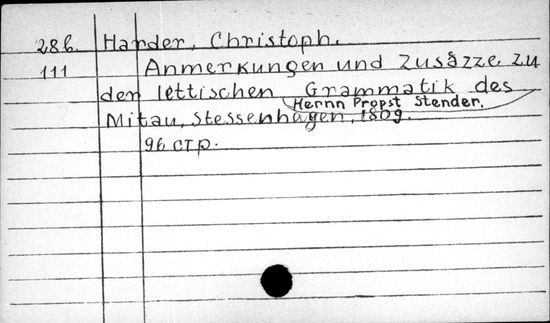 28б. Harder, Christoph.
111 Anmerkungen und Zusäzze zu
den lettischen Grammatik des
Hernn Propst Stender.
Mitau, Stessenhagen, 1809.
96 стр.